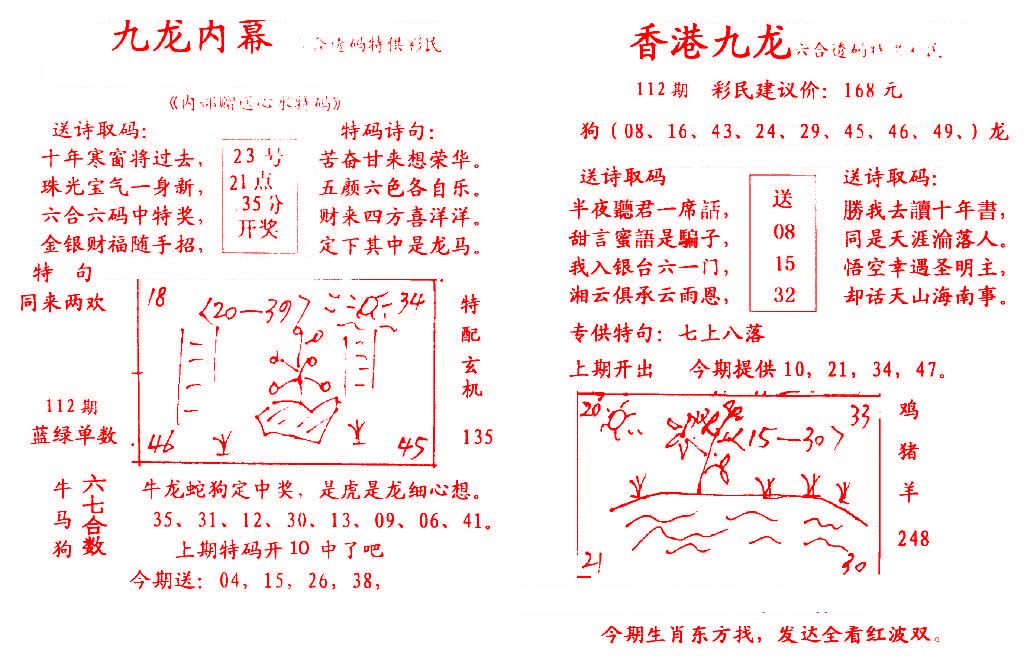 九龙内幕 六合透码特供彩民
《内部赠送心水特码》
送诗取码：
十年寒窗将过去，
珠光宝气一身新，
六合六码中特奖，
金银财福随手招，
23号
21点
35分
开奖
特码诗句：
苦奋甘来想荣华。
五颜六色各自乐。
财来四方喜洋洋。
定下其中是龙马。
特 句
同来两欢
112期
蓝绿单数
18
〈20—39〉
34
46
45
特
配
玄
机
135
牛
马
狗
六七合数
牛龙蛇狗定中奖，是虎是龙细心想。
35、31、12、30、13、09、06、41。
上期特码开10中了吧
今期送：04，15，26，38，
香港九龙 六合透码特
112期 彩民建议价：168元
狗（08、16、43、24、29、45、46、49、）龙
送诗取码
半夜聽君一席話，
甜言蜜語是騙子，
我入银台六一门，
湘云俱承云雨恩，
送
08
15
32
送诗取码：
勝我去讀十年書，
同是天涯淪落人。
悟空幸遇圣明主，
却话天山海南事。
专供特句：七上八落
上期开出 今期提供10，21，34，47。
20
33
〈15—30〉
21
30
鸡
猪
羊
248
今期生肖东方找，发达全看红波双。